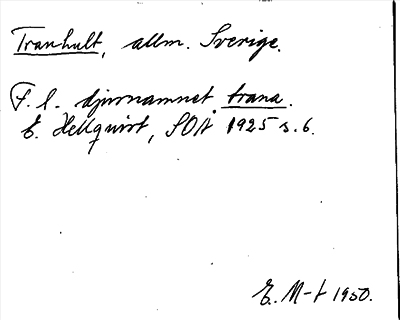 Tranhult, allm. Sverige.
F. l. djurnamnet trana.
E. Hellquist, SOÄ 1925 s. 6.
E. M-t 1950.